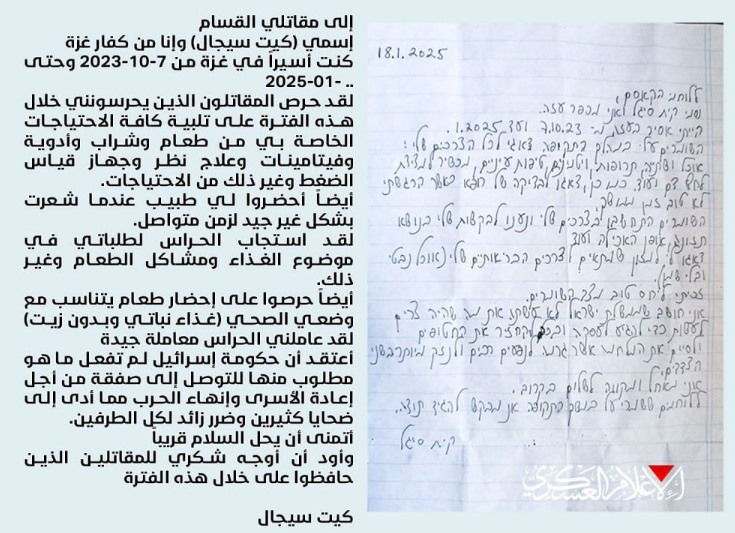 إلى مقاتلي القسام
إسمي (كيت سيجال) وإنا من كفار غزة
كنت أسيراً في غزة من 7-10-2023 وحتى
.. -01-2025
لقد حرص المقاتلون الذين يحرسونني خلال
هذه الفترة على تلبية كافة الاحتياجات
الخاصة بي من طعام وشراب وأدوية
وفيتامينات وعلاج نظر وجهاز قياس
الضغط وغير ذلك من الاحتياجات.
أيضاً أحضروا لي طبيب عندما شعرت
بشكل غير جيد لزمن متواصل.
لقد استجاب الحراس لطلباتي في
موضوع الغذاء ومشاكل الطعام وغير
ذلك.
أيضاً حرصوا على إحضار طعام يتناسب مع
وضعي الصحي (غذاء نباتي وبدون زيت)
لقد عاملني الحراس معاملة جيدة
أعتقد أن حكومة إسرائيل لم تفعل ما هو
مطلوب منها للتوصل إلى صفقة من أجل
إعادة الأسرى وإنهاء الحرب مما أدى إلى
ضحايا كثيرين وضرر زائد لكل الطرفين.
أتمنى أن يحل السلام قريباً
وأود أن أوجه شكري للمقاتلين الذين
حافظوا على خلال هذه الفترة
كيت سيجال
18.1.2025
ללוחמי הקסאם,
ושמי קית סיגל ואני מכפר עזה.
הייתי אסיר בעזה מ- 7.10.23 ועד 1.2025.
השומרים עלי במהלך התקופה דאגו לכל הצרכים שלי:
אוכל ושתיה, תרופות, ויטמינים, טיפות עיניים, מכשיר למדידת
לחץ דם ועוד. כמו כן, דאגו לבדיקה של רופא כאשר הרגשתי
לא טוב זמן ממושך.
השומרים התחשבו בצרכים שלי ונענו לבקשות שלי בנושא
תזונה, אופן האכילה ועוד.
דאגו למזון שמתאים לצרכים הבריאותיים שלי (אוכל נבטי
ובלי שמן).
זכיתי ליחס טוב מצד השומרים.
אני חושב שממשלת ישראל לא עשתה את מה שהיה צריך
לעשות כדי להגיע לעסקה ובכך להחזיר את החטופים
ולסיים את המלחמה אשר גרמה לנפגעים רבים ולנזק מיותר בשני
הצדדים.
אני מאחל ומקווה לשלום בקרוב.
ללוחמים ששמרו עלי במשך התקופה אני מבקש להגיד תודה..
קית סיגל
الإعلام العسكري